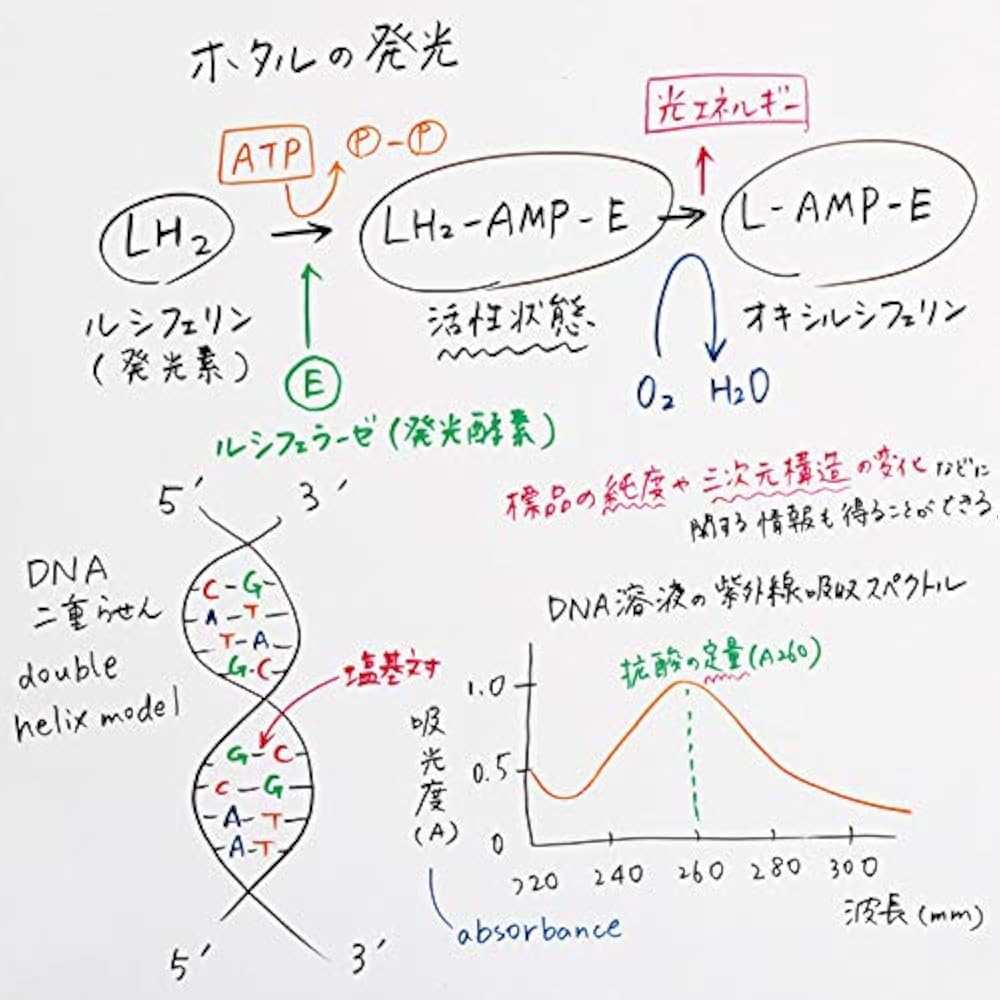 ホタルの発光
ATP
P-P
光エネルギー
LH2
LH2-AMP-E
L-AMP-E
ルシフェリン
(発光素)
活性状態
オキシルシフェリン
E
O2 H2O
ルシフェラーゼ(発光酵素)
標品の純度や三次元構造の変化などに
関する情報も得ることができる.
5′ 3′
DNA
二重らせん
double
helix model
C-G
A-T
T-A
G-C
塩基対
G-C
C-G
A-T
A-T
5′ 3′
DNA溶液の紫外線吸収スペクトル
抗酸の定量(A260)
1.0
0.5
0
吸光度(A)
220 240 260 280 300
波長(mm)
absorbance